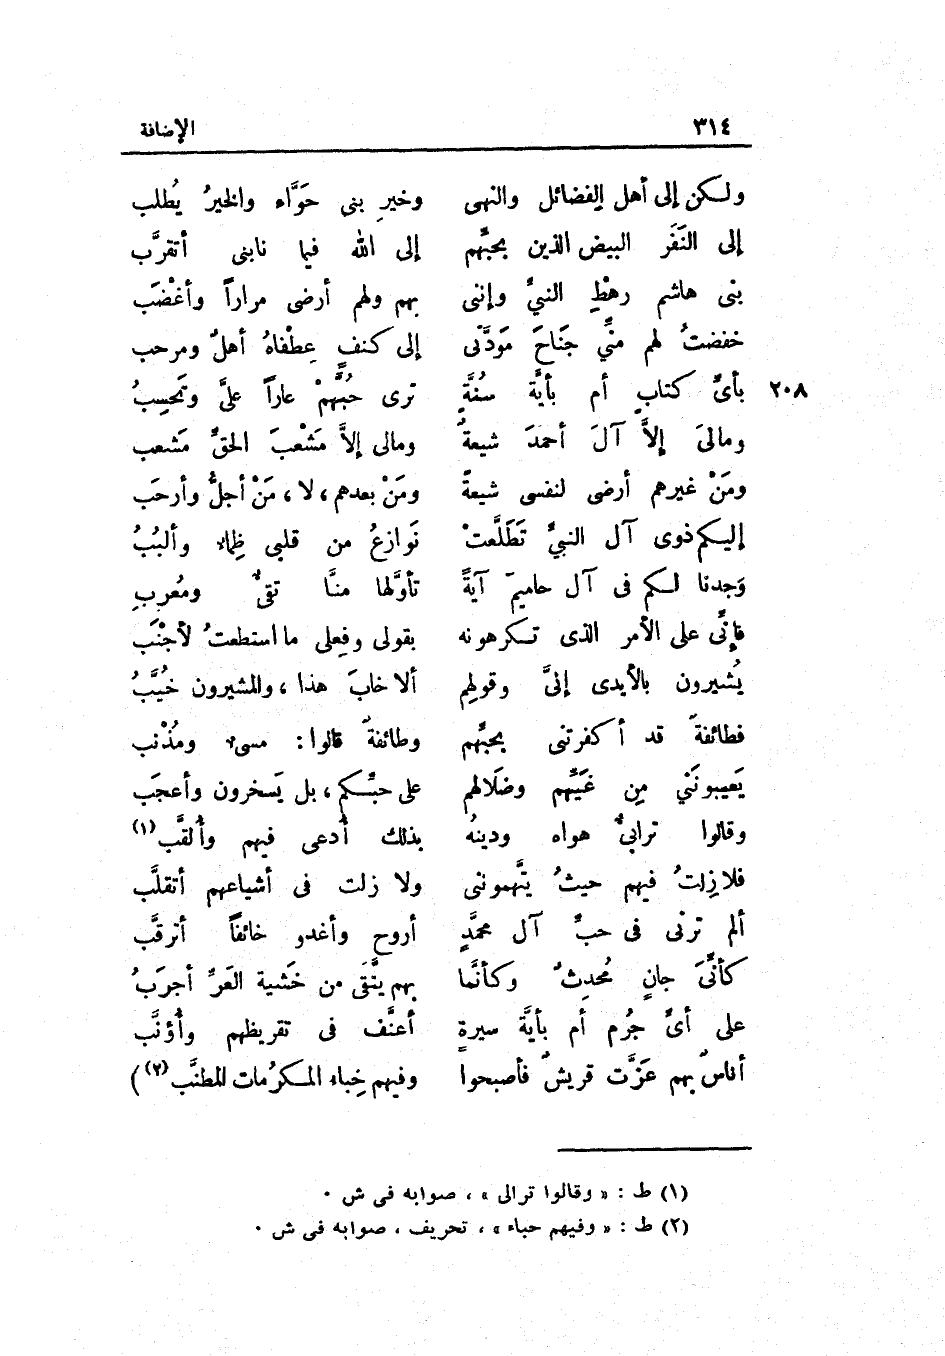 ٣١٤ الإضافة
ولكن إلى أهل الفضائل والنهى وخيرِ بنى حَوَّاء والخيرُ يُطلب
إلى النَّفَر البيض الذين بحبِّهم إلى الله فيما نابنى أتقرَّب
بنى هاشم رهْطِ النبيِّ وإننى بهم ولهم أرضى مراراً وأغضَب
خفضتُ لهم منِّي جَناحَ مَودَّتى إلى كنفٍ عِطْفاهُ أهلٌ ومرحب
٢٠٨ بأىِّ كتابٍ أم بأيَّة سُنَّةٍ ترى حُبَّهمْ عاراً علىَّ وتَحسِبُ
ومالىَ إلاَّ آلَ أحمدَ شيعةٌ ومالى إلاَّ مَشْعبَ الحقِّ مَشعب
ومَنْ غيرهم أرضى لنفسى شيعةً ومَنْ بعدهم، لا، مَنْ أجلُّ وأرحَب
إليكم ذوى آل النبيِّ تَطَلَّعتْ نَوازعُ من قلبى ظِماء وألببُ
وَجدنا لكم فى آل حاميمَ آيةً تأوَّلها منَّا تقىٌّ ومُعربِ
فإنِّى على الأمر الذى تكرهونه بقولى وفعلى ما استطعتُ لأجْنَب
يُشيرون بالأيدى إلىَّ وقولهم ألا خابَ هذا، والمشيرون خُيَّبُ
فطائفةٌ قد أكفرتنى بحبِّهم وطائفةٌ قالوا: مسىء ومُذْنب
يَعيبونَنْي مِن غَيِّهم وضَلَالهم على حبِّكم، بل يَسخرون وأعجَب
وقالوا ترابىٌّ هواه ودينهُ بذلك أُدعى فيهم وأُلقَّب (١)
فلا زِلتُ فيهم حيثُ يتَّهموننى ولا زلت فى أشياعهم أتقلَّب
ألم ترنْى فى حبِّ آل محمَّدٍ أروح وأغدو خائفاً أترقَّب
كأنِّىَ جانٍ مُحدِثٌ وكأنَّما بهم يتَّقَى من خَشية العَرِّ أجرَبُ
على أىِّ جرُم أم بأيَّة سيرةٍ أعنَّف فى تقريظهم وأُؤنَّب
أناسٌ بهم عَزَّت قريشٌ فأصبحوا وفيهم خِباء المكرُمات المطنَّب (٢) )
(١) ط : « وقالوا ترالى » ، صوابه فى ش .
(٢) ط : « وفيهم حباء » ، تحريف ، صوابه فى ش .